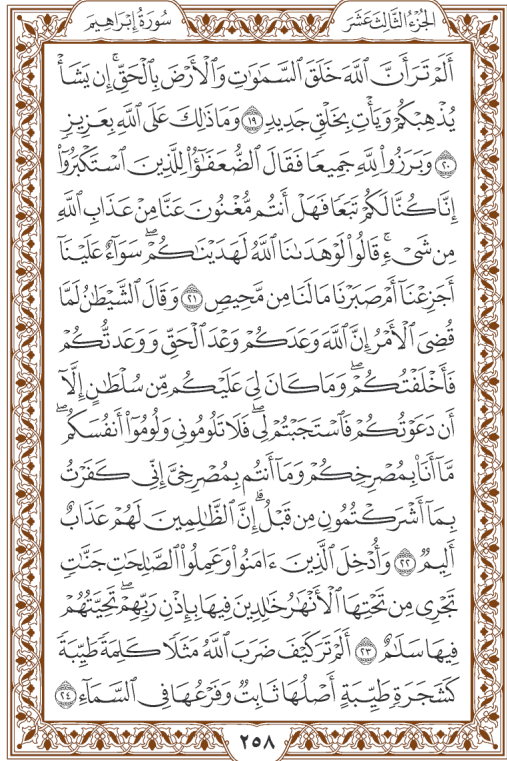 الجُزْءُ الثَّالِثَ عَشَرَ
سُورَةُ إِبْرَاهِيم
أَلَمْ تَرَ أَنَّ ٱللَّهَ خَلَقَ ٱلسَّمَٰوَٰتِ وَٱلْأَرْضَ بِٱلْحَقِّۚ إِن يَشَأْ
يُذْهِبْكُمْ وَيَأْتِ بِخَلْقٍ جَدِيدٍ ١٩ وَمَا ذَٰلِكَ عَلَى ٱللَّهِ بِعَزِيزٍ
٢٠ وَبَرَزُوا۟ لِلَّهِ جَمِيعًا فَقَالَ ٱلضُّعَفَٰٓؤُا۟ لِلَّذِينَ ٱسْتَكْبَرُوٓا۟
إِنَّا كُنَّا لَكُمْ تَبَعًا فَهَلْ أَنتُم مُّغْنُونَ عَنَّا مِنْ عَذَابِ ٱللَّهِ
مِن شَىْءٍۚ قَالُوا۟ لَوْ هَدَىٰنَا ٱللَّهُ لَهَدَيْنَٰكُمْۖ سَوَآءٌ عَلَيْنَآ
أَجَزِعْنَآ أَمْ صَبَرْنَا مَا لَنَا مِن مَّحِيصٍ ٢١ وَقَالَ ٱلشَّيْطَٰنُ لَمَّا
قُضِىَ ٱلْأَمْرُ إِنَّ ٱللَّهَ وَعَدَكُمْ وَعْدَ ٱلْحَقِّ وَوَعَدتُّكُمْ
فَأَخْلَفْتُكُمْۖ وَمَا كَانَ لِىَ عَلَيْكُم مِّن سُلْطَٰنٍ إِلَّآ
أَن دَعَوْتُكُمْ فَٱسْتَجَبْتُمْ لِىۖ فَلَا تَلُومُونِى وَلُومُوٓا۟ أَنفُسَكُمۖ
مَّآ أَنَا۠ بِمُصْرِخِكُمْ وَمَآ أَنتُم بِمُصْرِخِىَّ إِنِّى كَفَرْتُ
بِمَآ أَشْرَكْتُمُونِ مِن قَبْلُۗ إِنَّ ٱلظَّٰلِمِينَ لَهُمْ عَذَابٌ
أَلِيمٌ ٢٢ وَأُدْخِلَ ٱلَّذِينَ ءَامَنُوا۟ وَعَمِلُوا۟ ٱلصَّٰلِحَٰتِ جَنَّٰتٍ
تَجْرِى مِن تَحْتِهَا ٱلْأَنْهَٰرُ خَٰلِدِينَ فِيهَا بِإِذْنِ رَبِّهِمْۖ تَحِيَّتُهُمْ
فِيهَا سَلَٰمٌ ٢٣ أَلَمْ تَرَ كَيْفَ ضَرَبَ ٱللَّهُ مَثَلًا كَلِمَةً طَيِّبَةً
كَشَجَرَةٍ طَيِّبَةٍ أَصْلُهَا ثَابِتٌ وَفَرْعُهَا فِى ٱلسَّمَآءِ ٢٤
٢٥٨